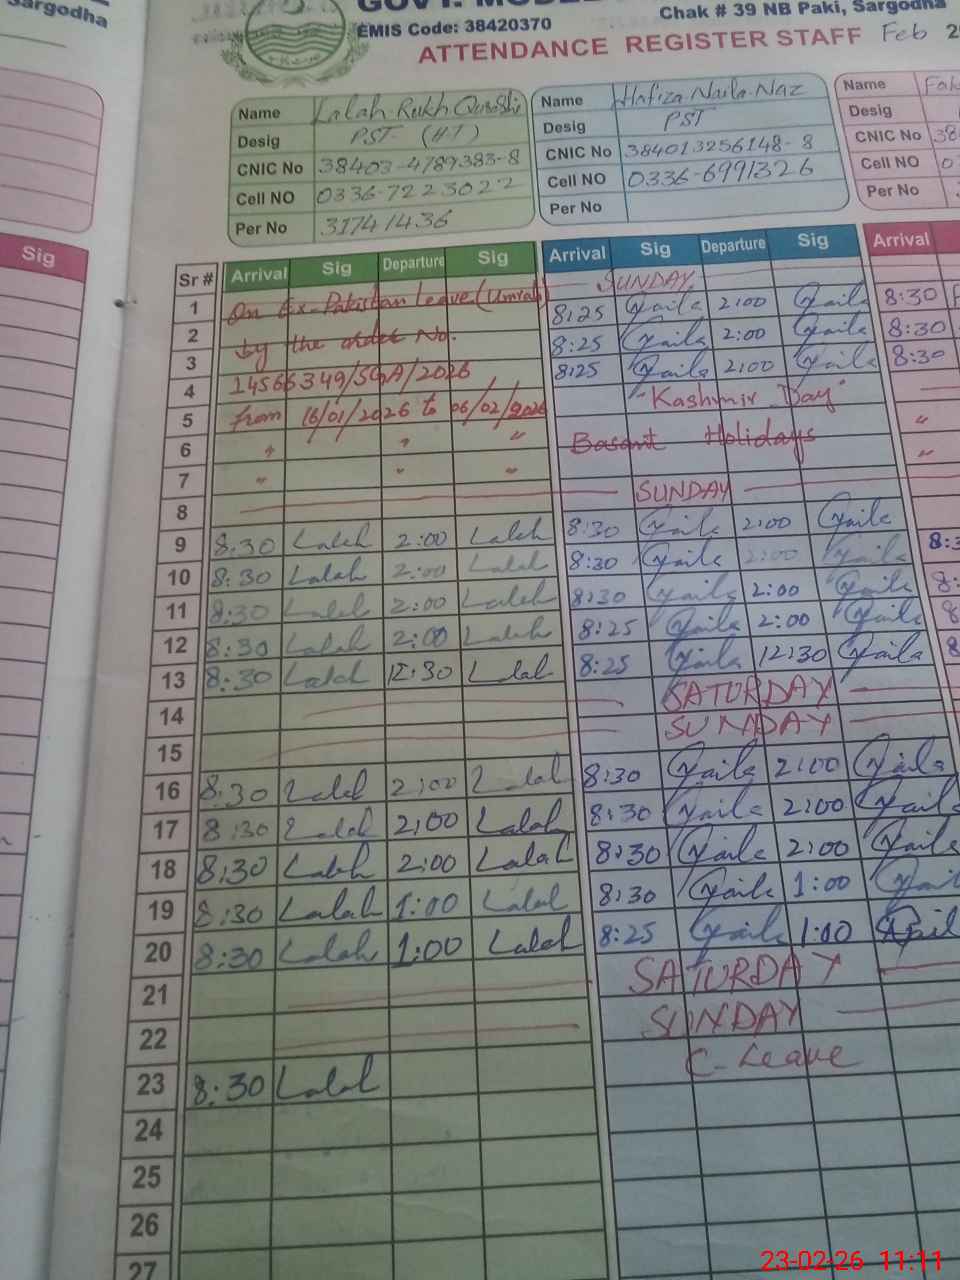 Sargodha
EMIS Code: 38420370
Chak # 39 NB Paki, Sargodha
ATTENDANCE REGISTER STAFF Feb
Name Lalah Rukh Qureshi
Desig PST (HT)
CNIC No 38403-4789383-8
Cell NO 0336-7223022
Per No 31741436
Name Hafiza Naila Naz
Desig PST
CNIC No 384013256148-8
Cell NO 0336-6991326
Per No
Name
Desig
CNIC No
Cell NO
Per No
Sig
Sr # Arrival Sig Departure Sig Arrival Sig Departure Sig Arrival
1 On Ex-Pakistan Leave (Umrah) SUNDAY
2 by the order No. 8:25 Naila 2:00 Naila 8:30
3 14566349/SGA/2026 8:25 Naila 2:00 Naila 8:30
4 from 16/01/2026 to 06/02/2026 8:25 Naila 2:00 Naila 8:30
5 " " " "Kashmir Day"
6 " " " Basant Holidays
7
8 SUNDAY
9 8:30 Lalah 2:00 Lalah 8:30 Naila 2:00 Naila
10 8:30 Lalah 2:00 Lalah 8:30 Naila 2:00 Naila
11 8:30 Lalah 2:00 Lalah 8:30 Naila 2:00 Naila
12 8:30 Lalah 2:00 Lalah 8:25 Naila 2:00 Naila
13 8:30 Lalah 12:30 Lalah 8:25 Naila 12:30 Naila
14 SATURDAY
15 SUNDAY
16 8:30 Lalah 2:00 Lalah 8:30 Naila 2:00 Naila
17 8:30 Lalah 2:00 Lalah 8:30 Naila 2:00 Naila
18 8:30 Lalah 2:00 Lalah 8:30 Naila 2:00 Naila
19 8:30 Lalah 1:00 Lalah 8:30 Naila 1:00 Naila
20 8:30 Lalah 1:00 Lalah 8:25 Naila 1:00 Naila
21 SATURDAY
22 SUNDAY
23 8:30 Lalah C-Leave
24
25
26
27
23-02-26 11:11